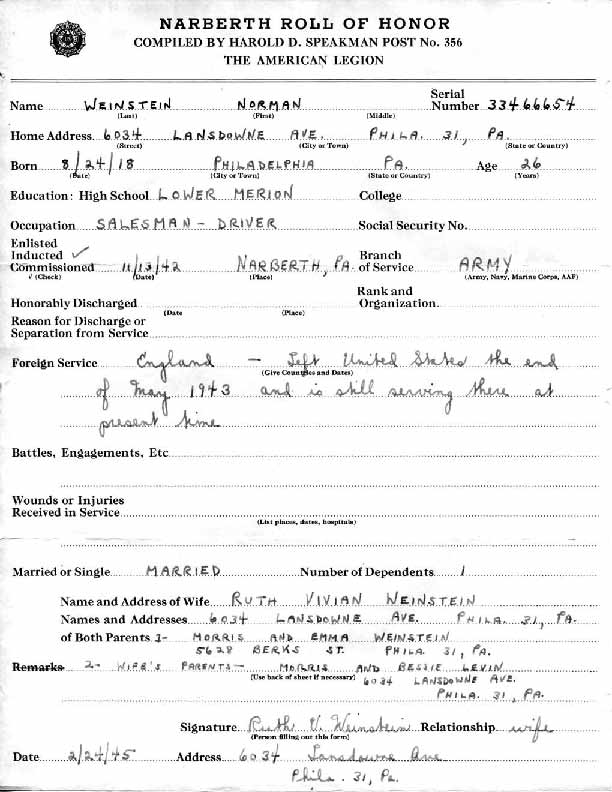 NARBERTH ROLL OF HONOR
COMPILED BY HAROLD D. SPEAKMAN POST No. 356
THE AMERICAN LEGION
Name WEINSTEIN NORMAN Serial Number 33466654
(Last) (First) (Middle)
Home Address 6034 LANSDOWNE AVE. PHILA. 31, PA.
(Street) (City or Town) (State or Country)
Born 8/24/18 PHILADELPHIA PA. Age 26
(Date) (City or Town) (State or Country) (Years)
Education: High School LOWER MERION College
Occupation SALESMAN - DRIVER Social Security No.
Enlisted
Inducted ✓ Branch
Commissioned 11/13/42 NARBERTH, PA. of Service ARMY
√ (Check) (Date) (Place) (Army, Navy, Marine Corps, AAF)
Rank and
Honorably Discharged Organization
(Date (Place)
Reason for Discharge or
Separation from Service
Foreign Service England - Left United States the end
(Give Countries and Dates)
of May 1943 and is still serving there at
present time
Battles, Engagements, Etc
Wounds or Injuries
Received in Service
(List places, dates, hospitals)
Married or Single MARRIED Number of Dependents 1
Name and Address of Wife RUTH VIVIAN WEINSTEIN
Names and Addresses 6034 LANSDOWNE AVE. PHILA. 31, PA.
of Both Parents 1- MORRIS AND EMMA WEINSTEIN
5628 BERKS ST. PHILA 31, PA.
Remarks 2- WIFE'S PARENTS - MORRIS AND BESSIE LEVIN
(Use back of sheet if necessary) 6034 LANSDOWNE AVE.
PHILA. 31, PA.
Signature Ruth V. Weinstein Relationship wife
(Person filling out this form)
Date 2/24/45 Address 6034 Lansdowne Ave
Phila. 31, Pa.